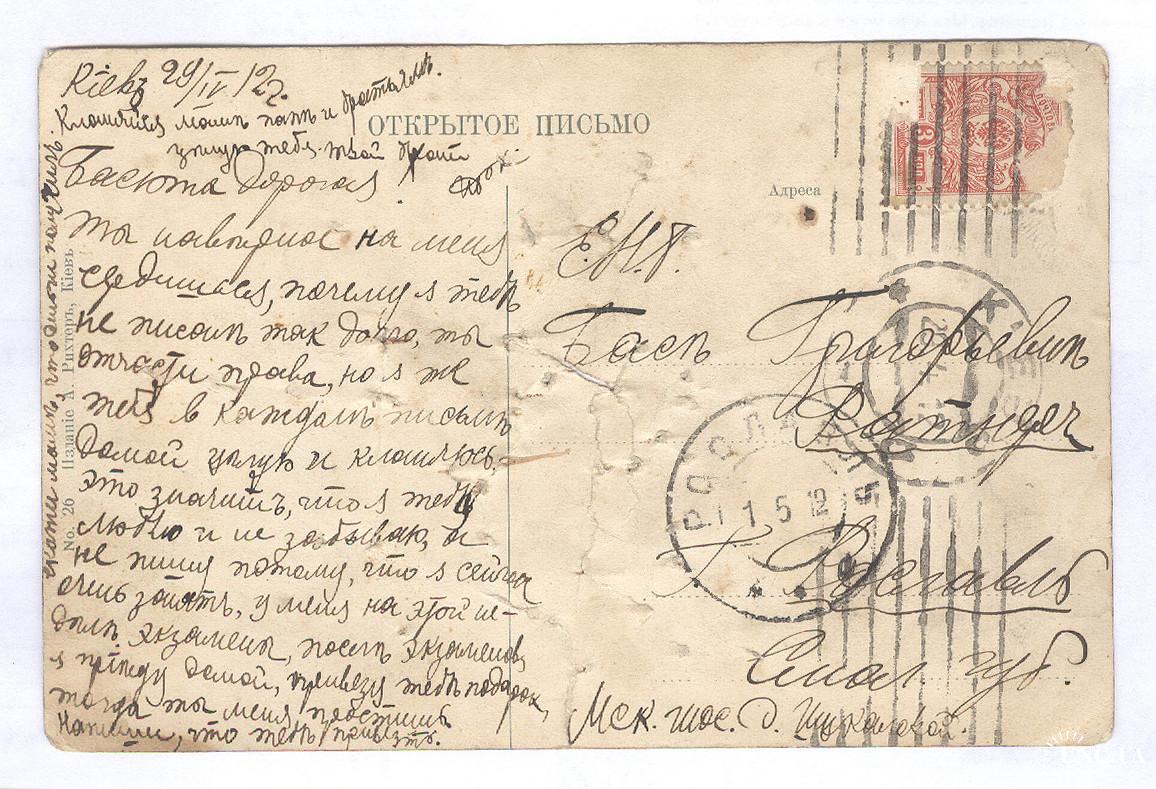 Кіевъ 29/IV 12 г.
Кланяйся мамѣ папѣ и братьямъ.
цѣлую тебя твой
ОТКРЫТОЕ ПИСЬМО
Басюта дорогая!
Ты навѣрное на меня
сердишься, почему я тебѣ
не писалъ такъ долго, ты
отчасти права, но я же
тебя в каждомъ письмѣ
домой цѣлую и кланяюсь.
Это значитъ, что я тебя
люблю и не забываю, а
не пишу потому, что я сейчас
очень занятъ, у меня на этой не-
дѣлѣ экзамены, послѣ экзаменовъ
я пріѣду домой, привезу тебѣ подарок,
тогда ты меня простишь
Напиши, что тебѣ привезть.
No. 26 Изданіе А. Рихтеръ, Кіевъ
Адреса
Е.И.Г.
Басѣ Григорьевнѣ
Г. Рославль
Смол. губ.
Мск. шос. д.
3 КОП
ПОЧТОВ
РОСЛАВЛЬ
1 5 12
КІЕВЪ